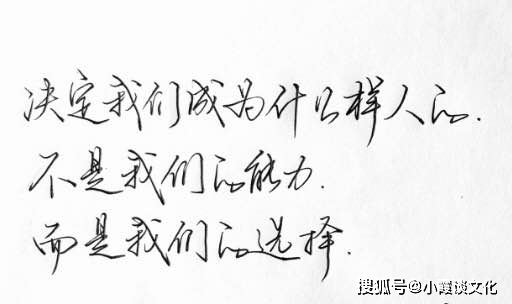 决定我们成为什么样人的.
不是我们的能力.
而是我们的选择.
搜狐号@小霞谈文化